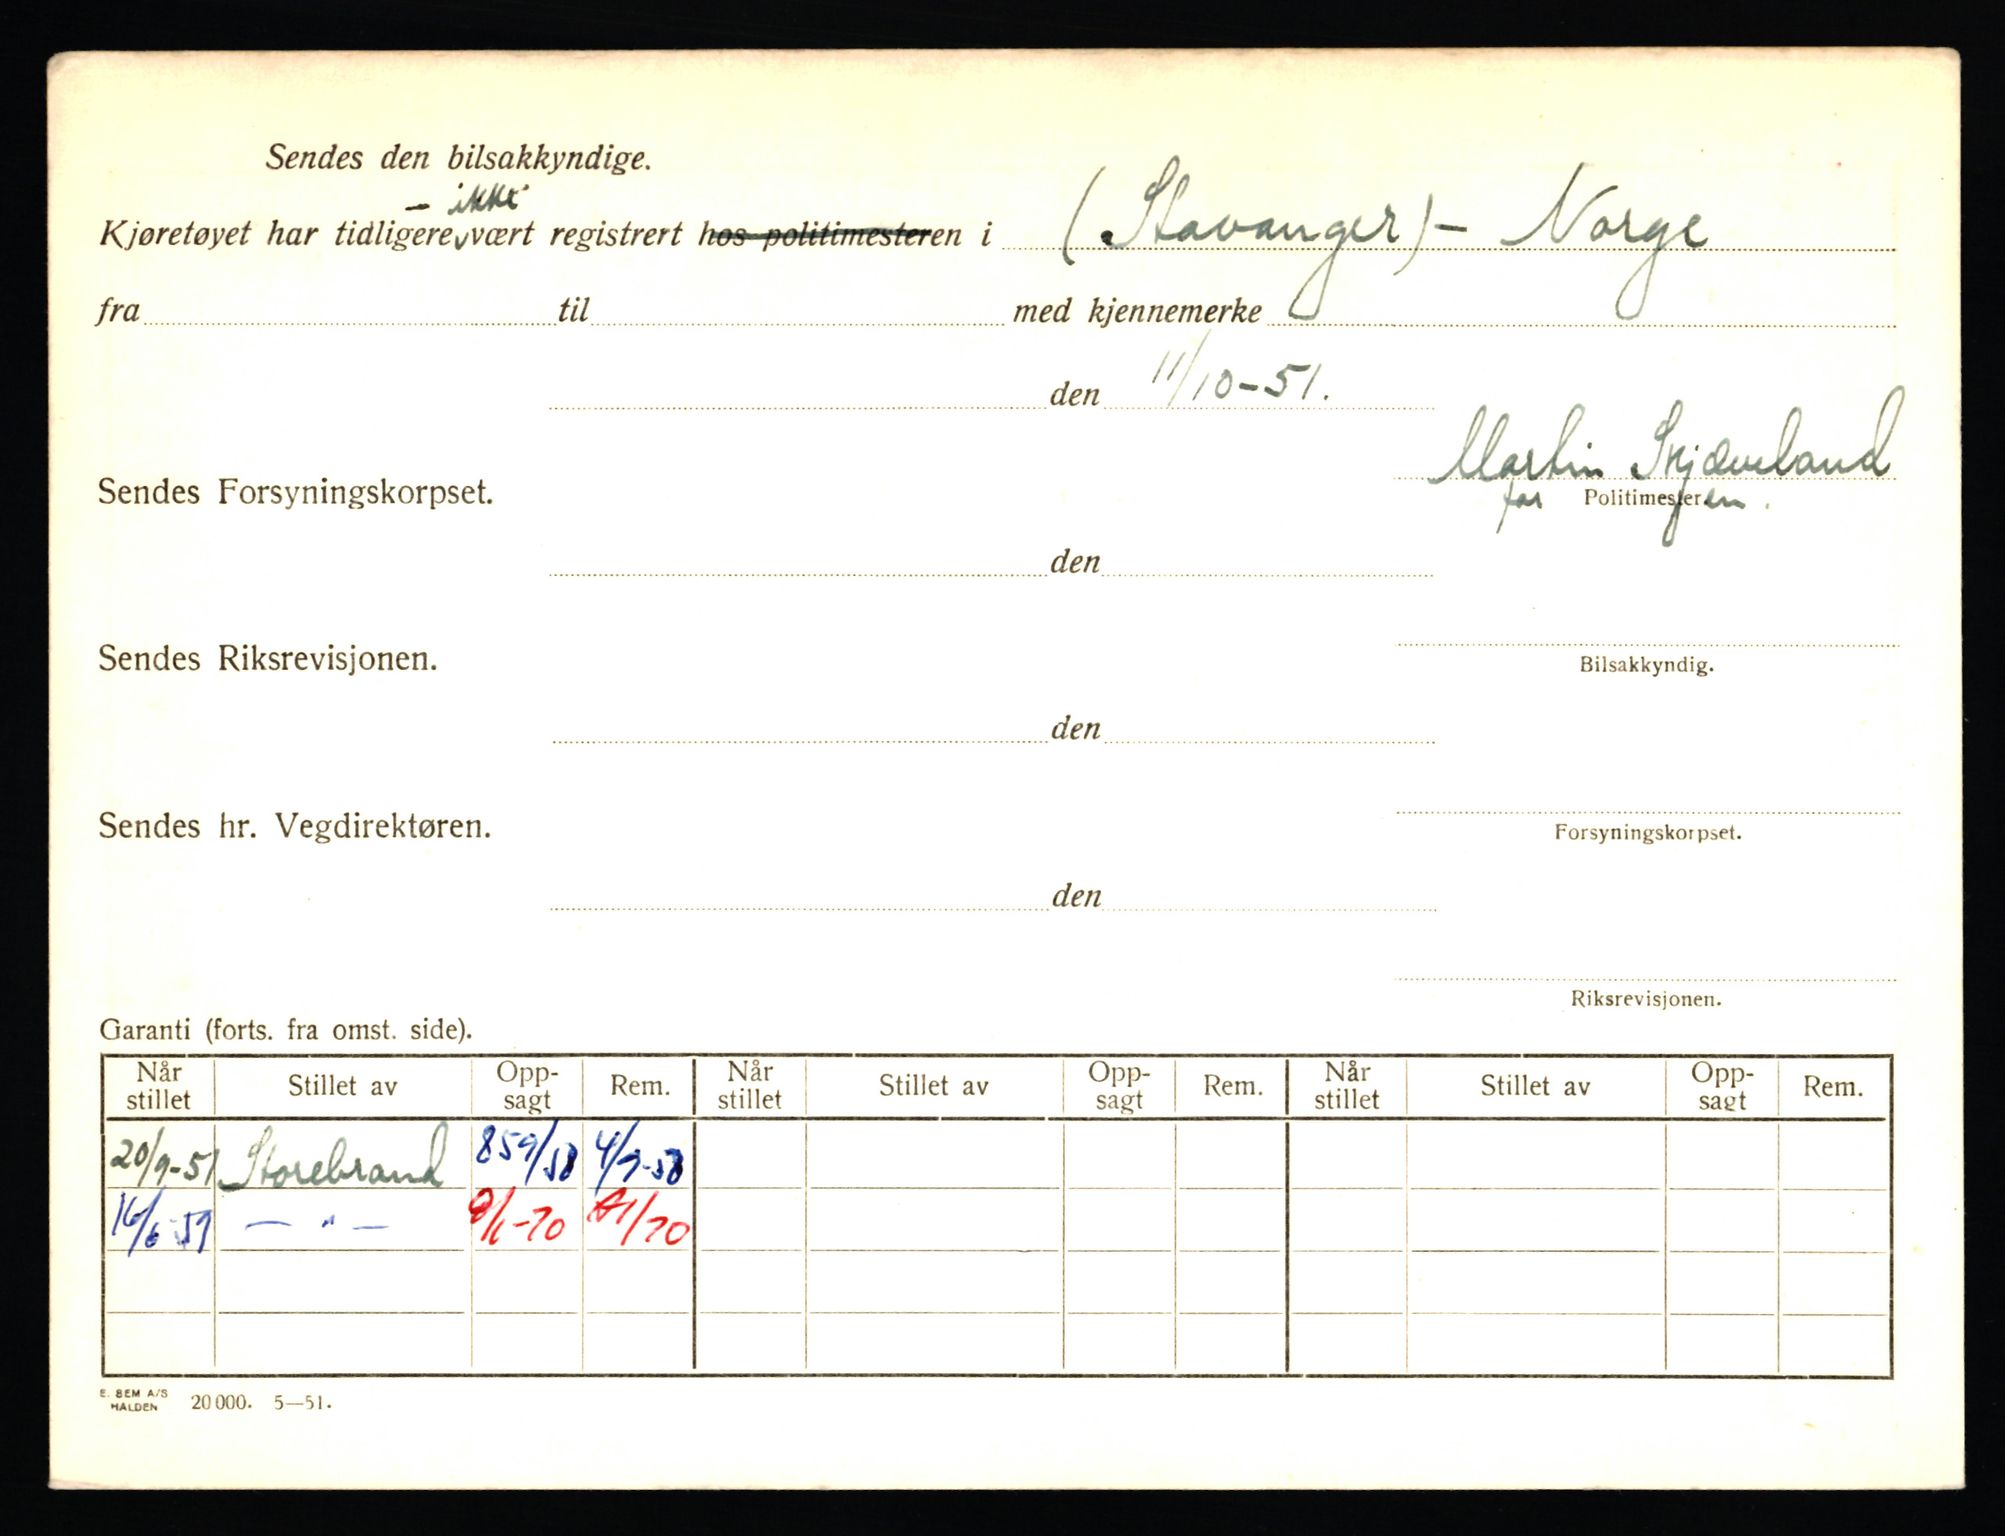 Sendes den bilsakkyndige.
- ikke
Kjøretøyet har tidligere vært registrert hos politimesteren i (Stavanger) - Norge
fra til med kjennemerke
den 11/10-51.
Martin Skjæveland
Sendes Forsyningskorpset. for Politimesteren.
den
Sendes Riksrevisjonen. Bilsakkyndig.
den
Sendes hr. Vegdirektøren. Forsyningskorpset.
den
Riksrevisjonen.
Garanti (forts. fra omst. side).
Når stillet Stillet av Opp-sagt Rem. Når stillet Stillet av Opp-sagt Rem. Når stillet Stillet av Opp-sagt Rem.
20/9-51 Storebrand 859/58 4/9-58
16/6-59 — " — /1-70 /70
E. SEM A/S
HALDEN 20 000. 5—51.